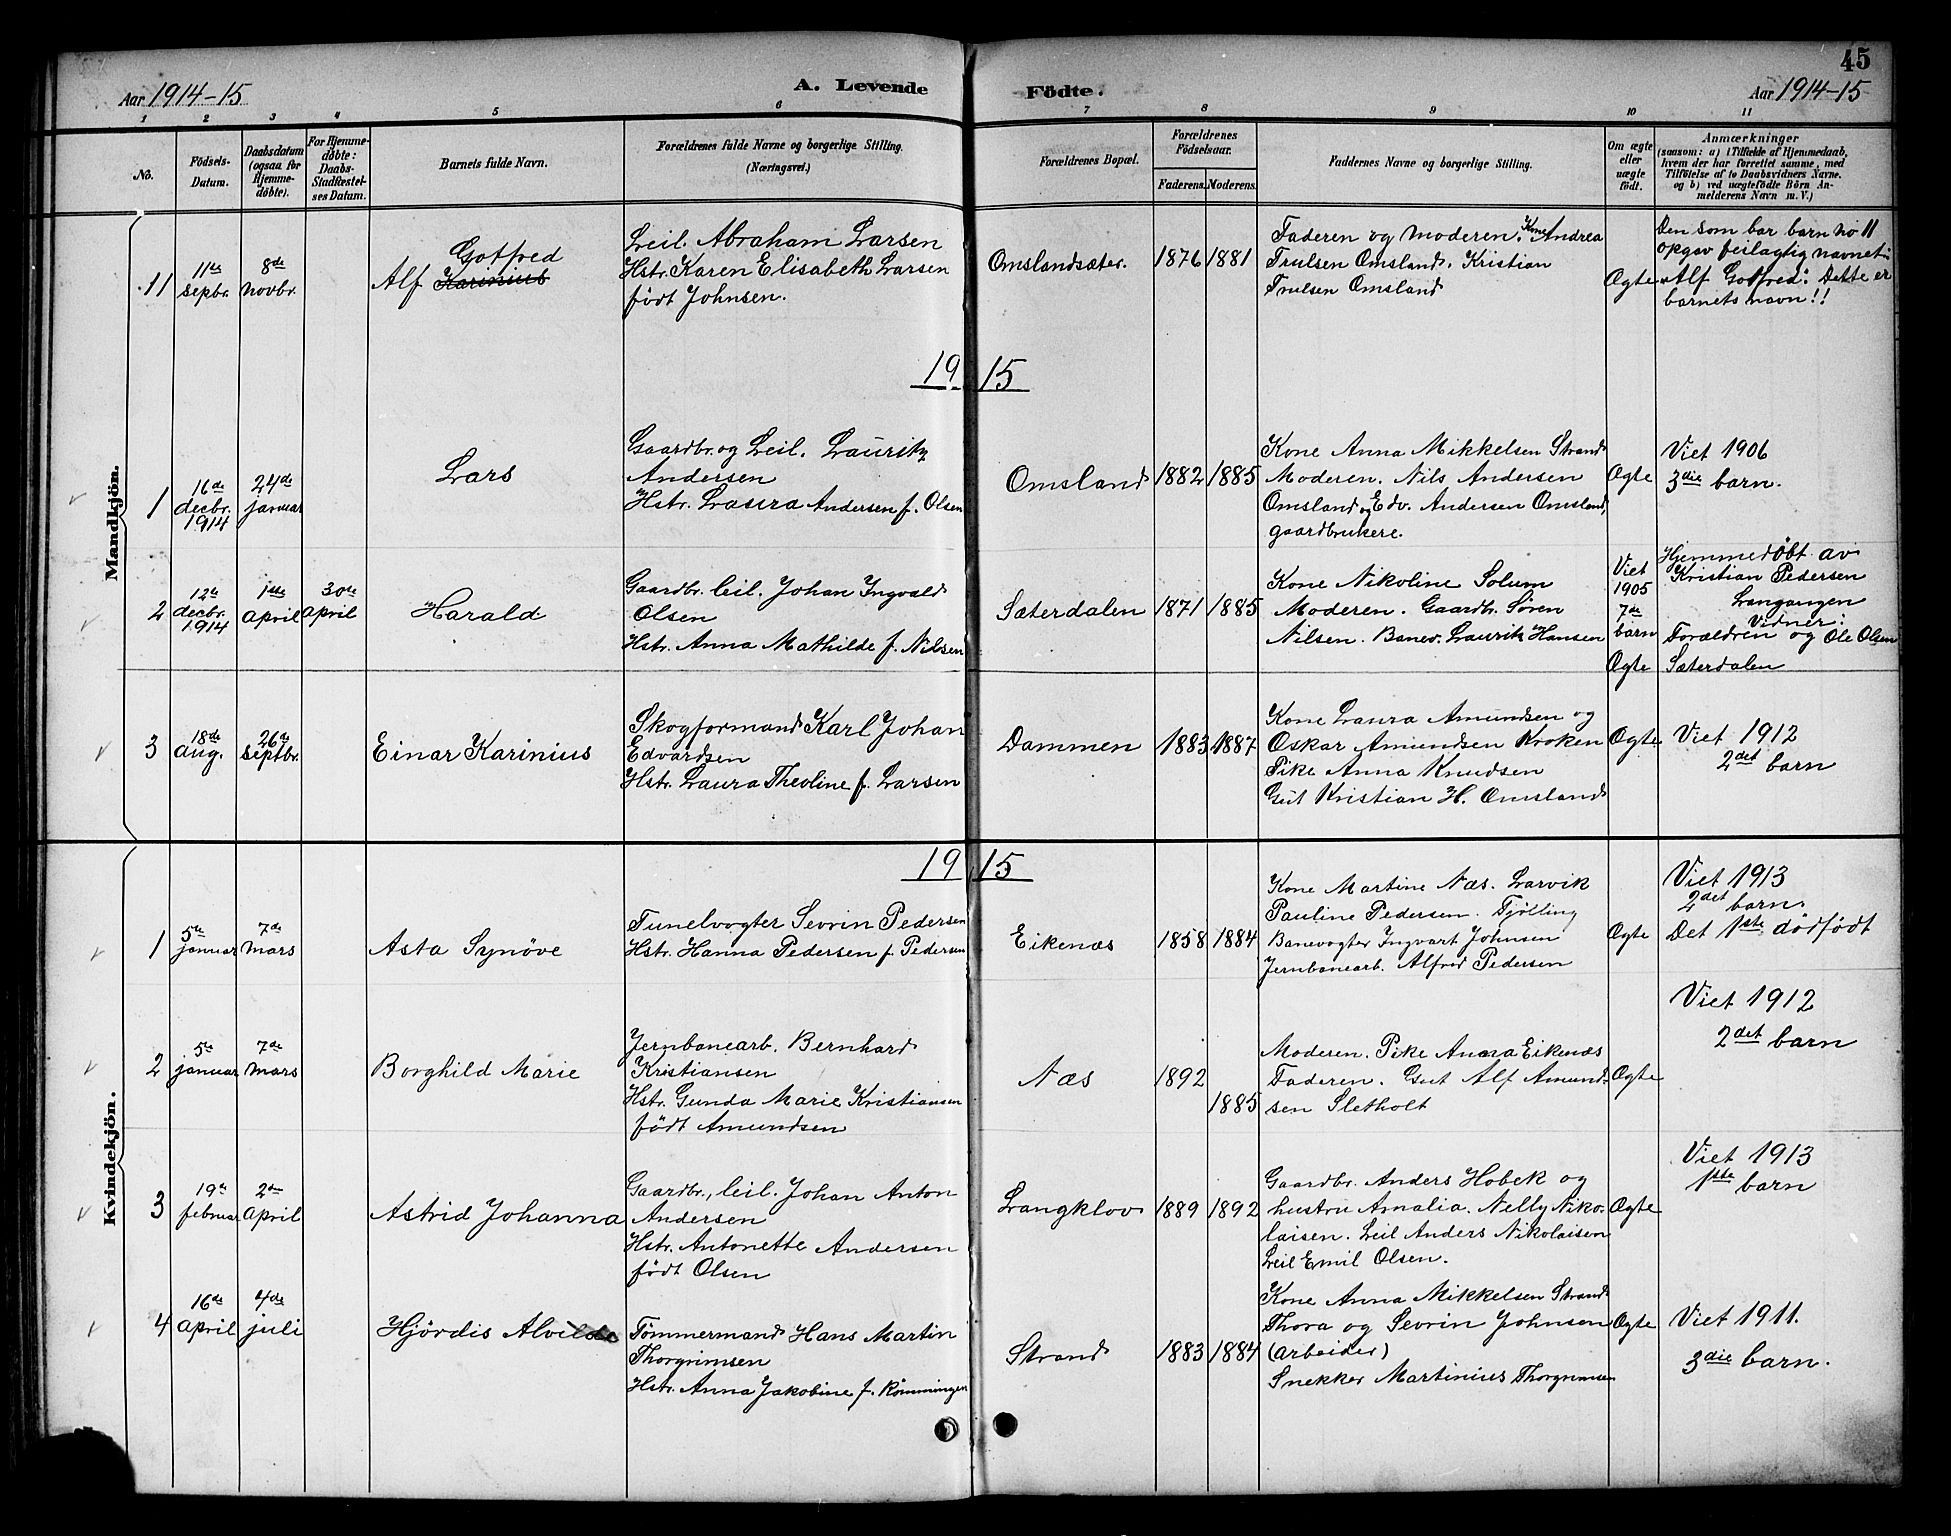 45
Aar 1914-15
A. Levende Födte.
Aar 1914-15
1 2 3 4 5 6 7 8 9 10 11
No.
Födsels-Datum.
Daabsdatum (ogsaa for Hjemme-døbte).
For Hjemme-døbte: Daabs-Stadfæstel-ses Datum.
Barnets fulde Navn.
Forældrenes fulde Navne og borgerlige Stilling.
(Næringsvei.)
Forældrenes Bopæl.
Forældrenes Födselsaar.
Faderens.
Moderens.
Faddernes Navne og borgerlige Stilling.
Om ægte eller uægte födt.
Anmærkninger
(saasom: a) i Tilfælde af Hjemmedaab,
hvem der har forrettet samme, med
Tilföielse af to Daabsvidners Navne.
og b) ved uægtefödte Börn An-
melderens Navn m. V.)
Mandkjön.
11
11te septbr.
8de novbr.
Gotfred
Alf Karinius
Leil. Abraham Larsen
Hstr. Karen Elisabeth Larsen
födt Johnsen.
Omslandsæter.
1876
1881
Faderen og Moderen. Kone Andrea
Trulsen Omsland. Kristian
Trulsen Omsland
Ogte
Den som bar barn no 11
opgav feilagtig navnet:
"Alf Gotfred". Dette er
barnets navn!!
1915
1
16de decbr. 1914
24de januar
Lars
Gaardbr. og Leil. Lauritz
Andersen
Hstr. Laura Andersen f. Olsen
Omsland
1882
1885
Kone Anna Mikkelsen Strand
Moderen. Nils Andersen
Omsland og Edv. Andersen Omsland,
gaardbrukere.
Ogte
Viet 1906
3die barn.
2
12te decbr. 1914
1ste April
30te April
Harald
Gaardbr. leil. Johan Ingvald
Olsen
Hstr. Anna Mathilde f. Nilsen
Sæterdalen
1871
1885
Kone Nikoline Solum
Moderen. Gaardbr. Sören
Nilsen. Banev. Lauritz Hansen
Viet
1905
7de
barn
Ogte
Hjemmedöbt av
Kristian Pedersen
Langangen
Vidner:
Forældren og Ole Olsen
Sæterdalen
3
18de aug.
26de septbr.
Einar Karinius
Skogformand Karl Johan
Edvardsen
Hstr. Laura Theoline f. Larsen
Dammen
1883
1887
Kone Laura Amundsen og
Oskar Amundsen Kroken
Pike Anna Knudsen
Gut Kristian H. Omsland
Ogte
Viet 1912
2det barn
Kvindekjön.
1915
1
5te januar
7de Mars
Asta Synöve
Tunelvogter Sevrin Pedersen
Hstr. Hanna Pedersen f. Pedersen
Eikenæs
1858
1884
Kone Martine Næs. Larvik
Pauline Pedersen. Tjölling
Banevogter Ingvart Johnsen
Jernbanearb. Alfred Pedersen
Ogte
Viet 1913
2det barn.
Det 1ste dödfödt
2
5te januar
7de Mars
Borghild Marie
Jernbanearb. Bernhard
Kristiansen
Hstr. Gunda Marie Kristiansen
födt Amundsen
Næs
1892
1885
Moderen. Pike Anna Eikenæs
Faderen. Gut Alf Amund-
sen Sletholt
Ogte
Viet 1912
2det barn
3
19de februar
2den April
Astrid Johanna
Gaardbr., leil. Johan Anton
Andersen
Hstr. Antonette Andersen
födt Olsen
Langklov
1889
1892
Gaardbr. Anders Hobek og
hustru Amalia. Nelly Niko-
laisen. Leil Anders Nikolaisen
Leil Emil Olsen.
Ogte
Viet 1913
1ste barn
4
16de April
4de juli
Hjördis Alvilde
Tömmermand Hans Martin
Thorgrimsen
Hstr. Anna Jakobine f. Römmingen
Strand
1883
1884
Kone Anna Mikkelsen Strand
Thora og Sevrin Johnsen
(arbeider)
Snekker Martinius Thorgrimsen
Ogte
Viet 1911.
3die barn.